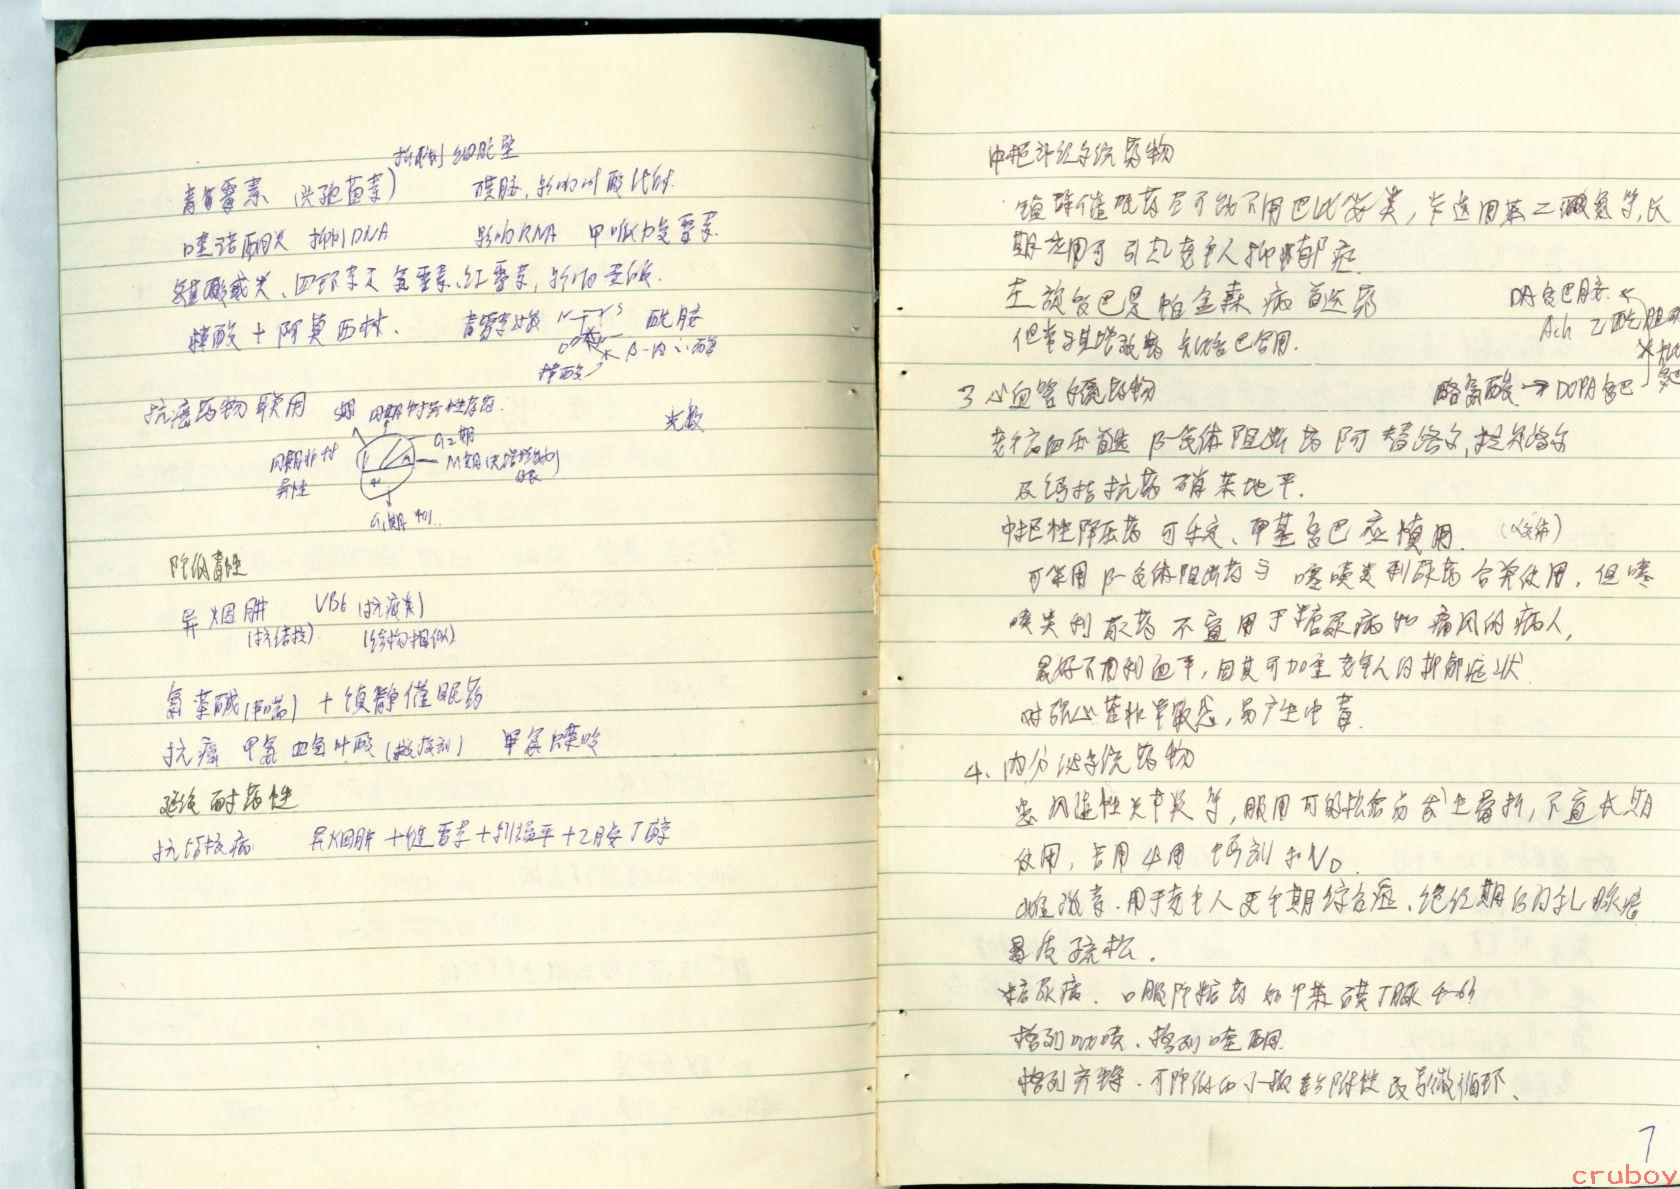 抑制细胞壁
青霉素 (头孢菌素) 磺胺,影响叶酸代谢.
喹诺酮类 抑制DNA 影响RNA 甲哌力复霉素.
氨基酸甙类、四环素 氯霉素、红霉素,影响蛋白.
棒酸 + 阿莫西林. 青霉素 酰胺
β-内 酶
棒酸
抗癌药物联用 S期 周期特异性药.
G2期
周期非特异性 M期
G1期
降低毒性
异烟肼 VB6
(抗结核) (结构相似)
氨茶碱(平喘) + 镇静催眠药
抗癌 甲氨四氢叶酸 甲氨喋呤
延缓耐药性
抗结核病 异烟肼 + 链霉素 + 利福平 + 乙胺丁醇
中枢神经系统药物
镇静催眠药尽可能不用巴比妥类,常选用苯二氮䓬等,长
期应用可引起老年人抑郁症.
左旋多巴是帕金森病首选药 DA多巴胺
Ach 乙酰胆
酪氨酸 → DOPA多巴
3 心血管系统药物
老年高血压首选β-受体阻断药阿替洛尔,
及钙拮抗药硝苯地平.
中枢性降压药可乐定、甲基多巴应慎用.
可单用β-受体阻断药与噻嗪类利尿药合并使用,但噻
嗪类利尿药不宜用于糖尿病和痛风的病人,
最好不用利血平,因其可加重老年人的抑郁症状.
对强心苷非常敏感,易产生中毒.
4、内分泌系统药物
患风湿性关节炎等,服用可的松容易发生骨折,不宜长期
使用,合用 钙剂和VD.
雌激素.用于老年人更年期综合症、绝经期后的乳腺癌
骨质疏松.
糖尿病.口服降糖药如甲苯磺丁脲
格列吡嗪.格列喹酮
格列齐特.可降低血小板黏附性改善微循环、
7
cruboy